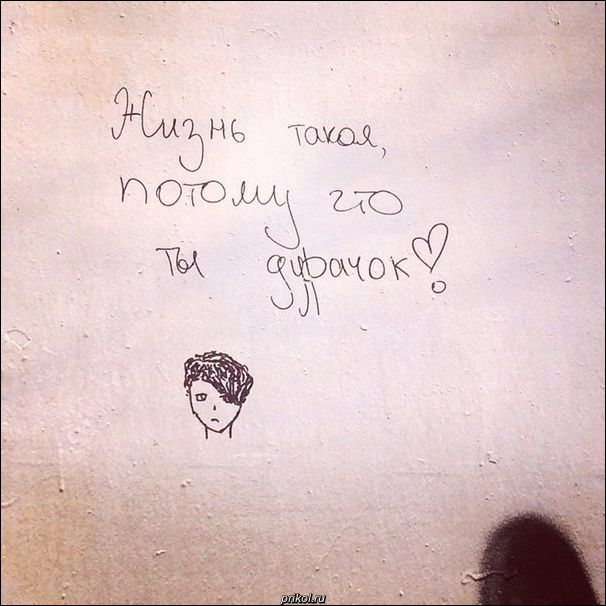 Жизнь такая,
потому что
ты дурачок!
prikol.ru